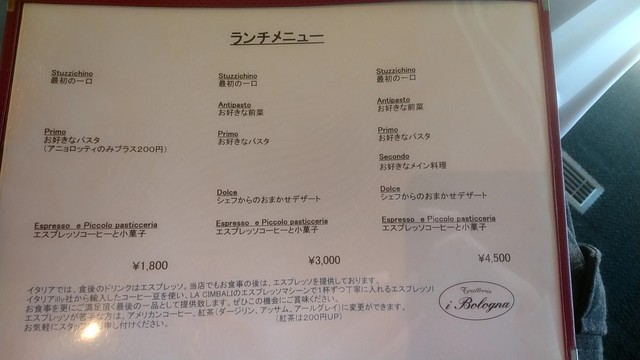 ランチメニュー
Stuzzichino
最初の一口
Primo
お好きなパスタ
(アニョロッティのみプラス200円)
Espresso e Piccolo pasticceria
エスプレッソコーヒーと小菓子
¥1,800
Stuzzichino
最初の一口
Antipasto
お好きな前菜
Primo
お好きなパスタ
Dolce
シェフからのおまかせデザート
Espresso e Piccolo pasticceria
エスプレッソコーヒーと小菓子
¥3,000
Stuzzichino
最初の一口
Antipasto
お好きな前菜
Primo
お好きなパスタ
Secondo
お好きなメイン料理
Dolce
シェフからのおまかせデザート
Espresso e Piccolo pasticceria
エスプレッソコーヒーと小菓子
¥4,500
イタリアでは、食後のドリンクはエスプレッソ。当店でもお食事の後は、エスプレッソを提供しております。
イタリアilly社から輸入したコーヒー豆を使い、LA CIMBALIのエスプレッソマシーンで1杯ずつ丁寧に入れるエスプレッソ!
お食事を更にご満足頂く最後の一品として提供致します。ぜひこの機会にご賞味ください。
エスプレッソが苦手な方は、アメリカンコーヒー、紅茶(ダージリン、アッサム、アールグレイ)に変更ができます。
(紅茶は200円UP)
お気軽にスタッフ 申し付けください。
Trattoria
i Bologna